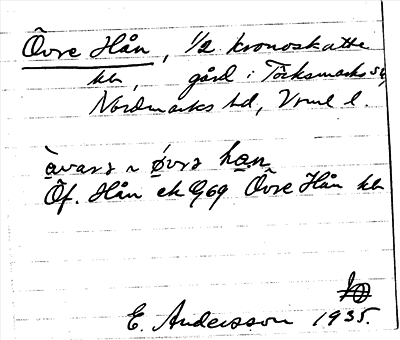 Övre Hån, 1/2 kronoskatte
hn, gård i Töcksmarks sn,
Nordmarks hd, Vrml l.
àvarz ~ øvrz han
Öf. Hån ek 1969 Övre Hån hn
E. Andersson 1935.